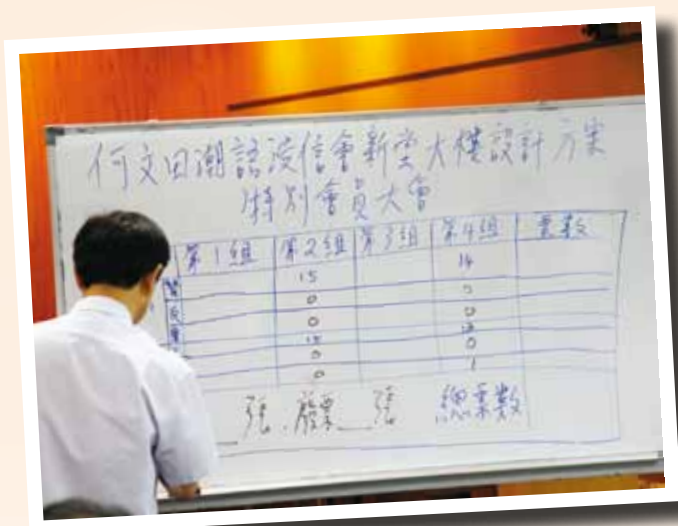 何文田潮語浸信會新堂大樓設計方案
特別會員大會
第1組 第2組 第3組 第4組 票數
15 14
0 0
0 0
0
0 1
張 . 廢票 張 總票數